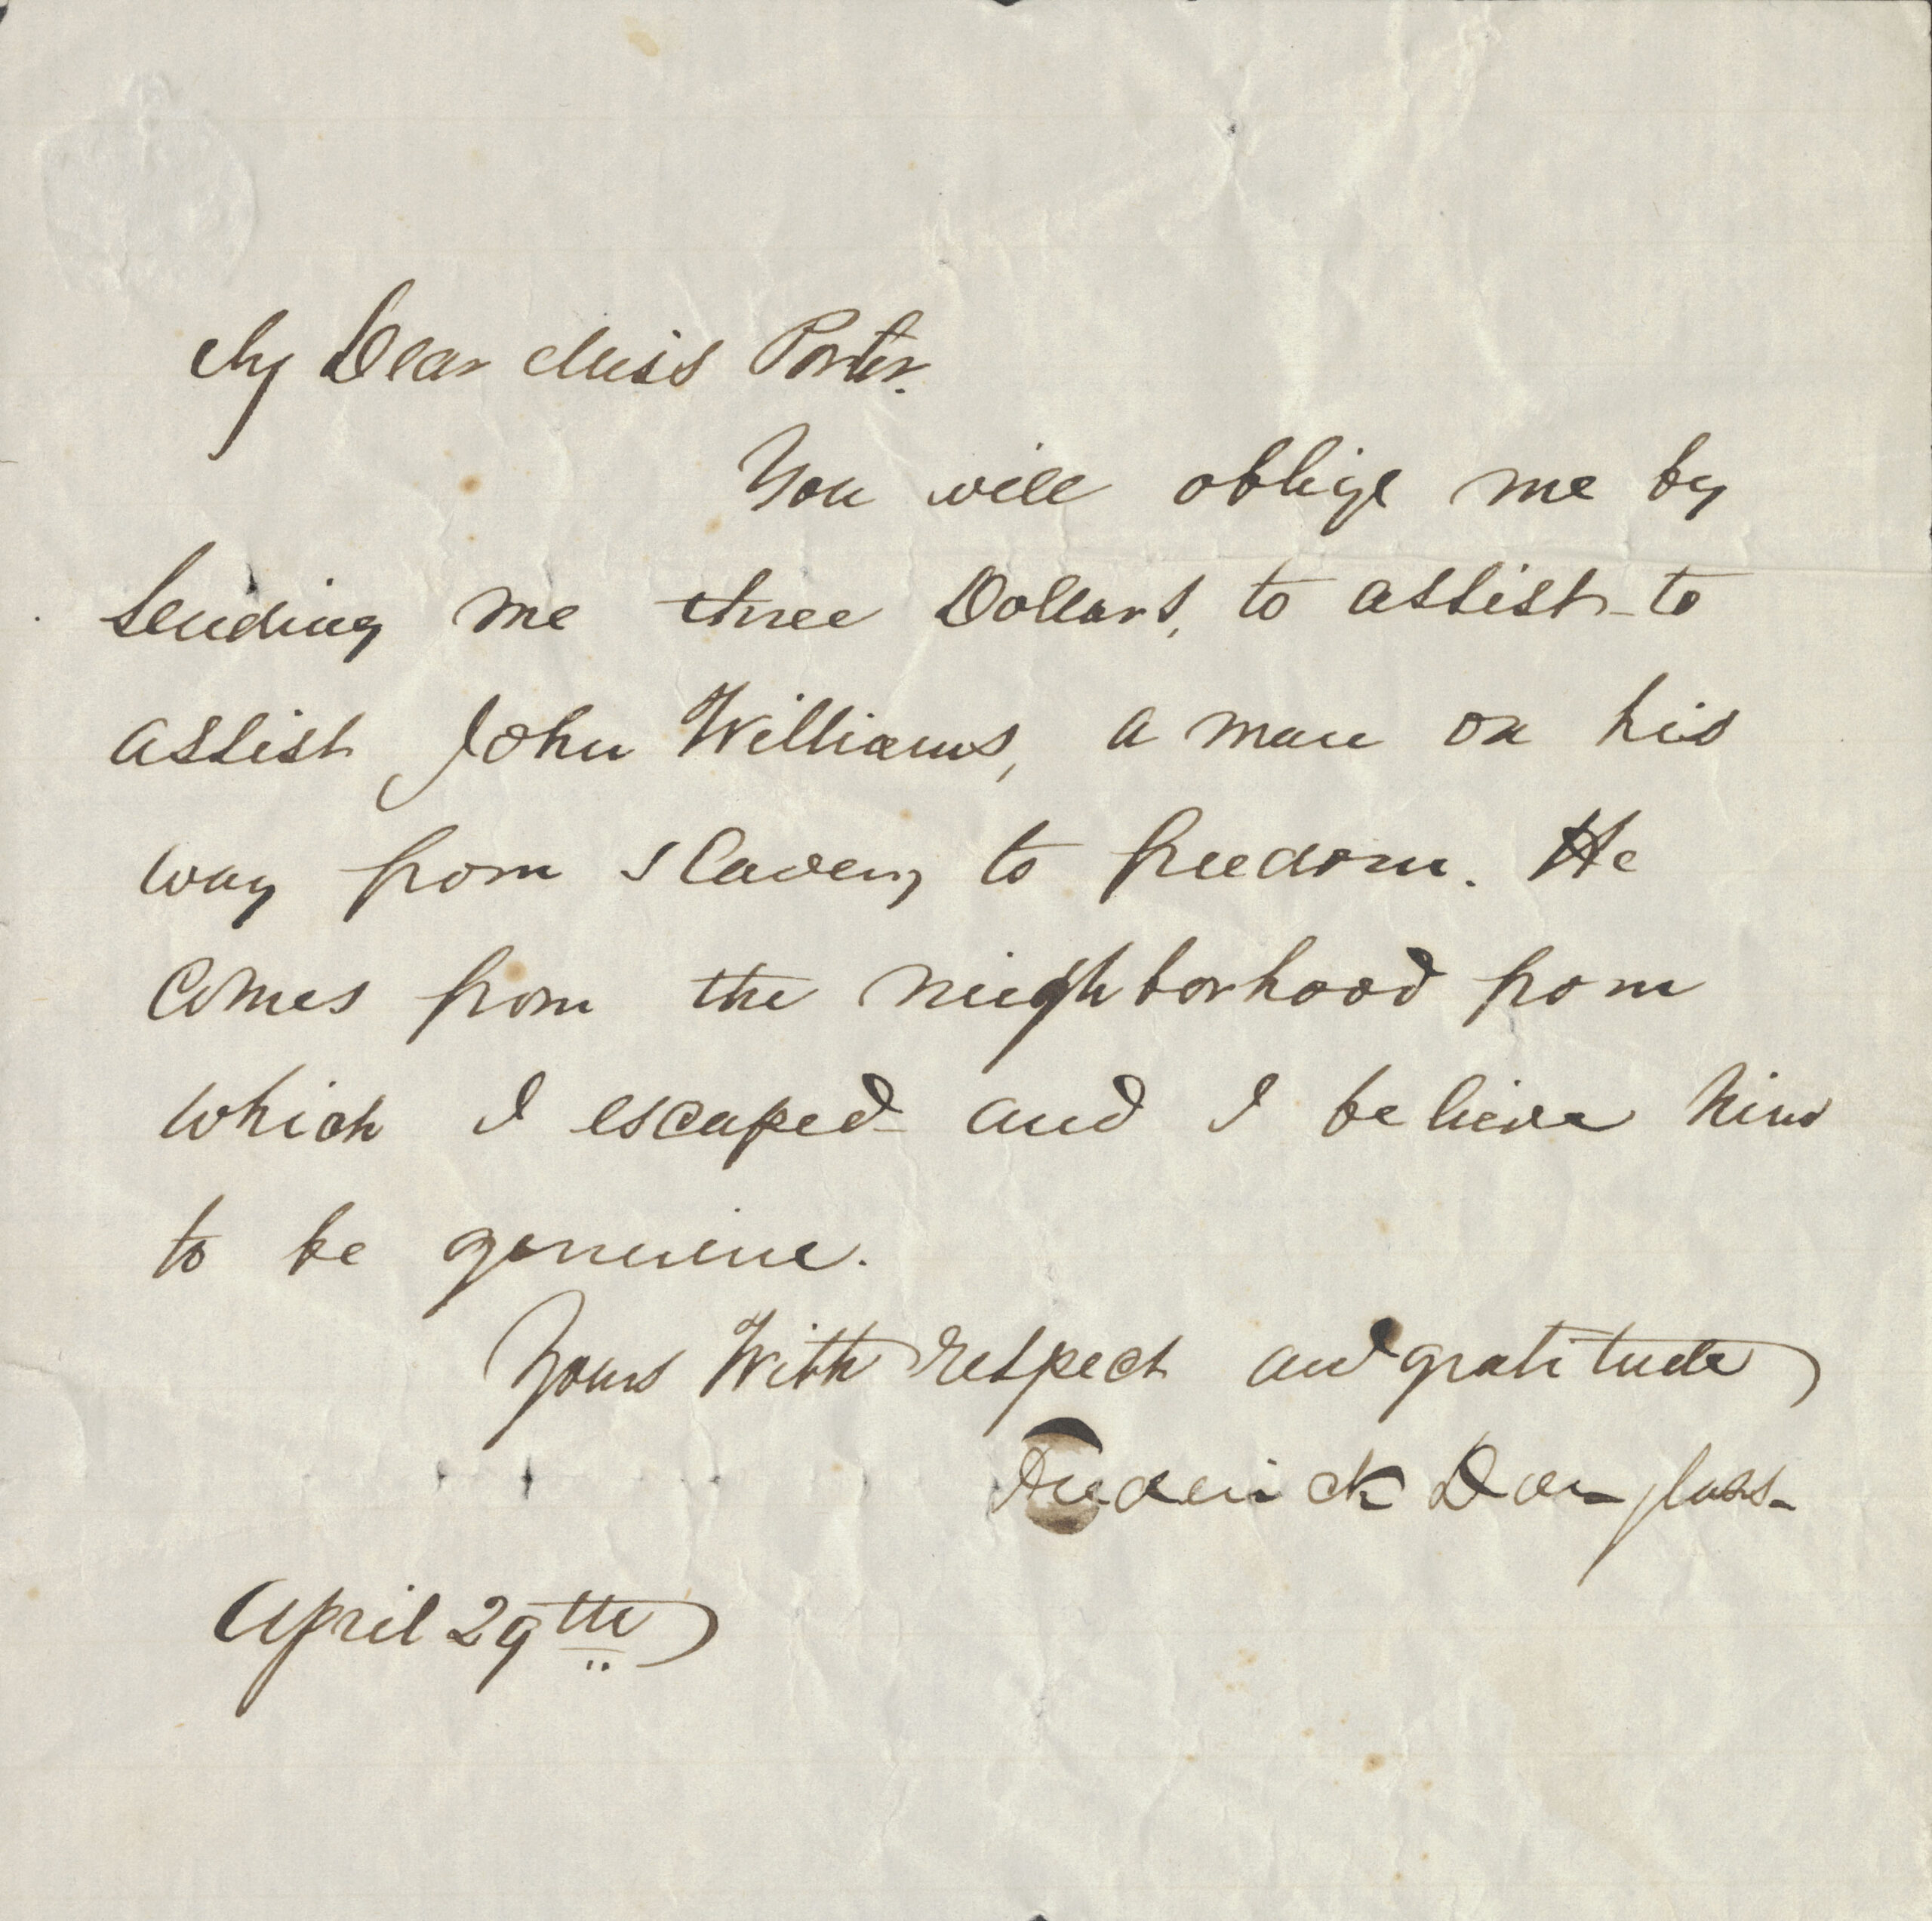 My Dear Miss Porter.
You will oblige me by
sending me three Dollars, to assist to
assist John Williams, a man on his
way from slavery to freedom. He
comes from the neighborhood from
which I escaped and I believe him
to be genuine.
Yours With respect and gratitude
Frederick Douglass-
April 29th